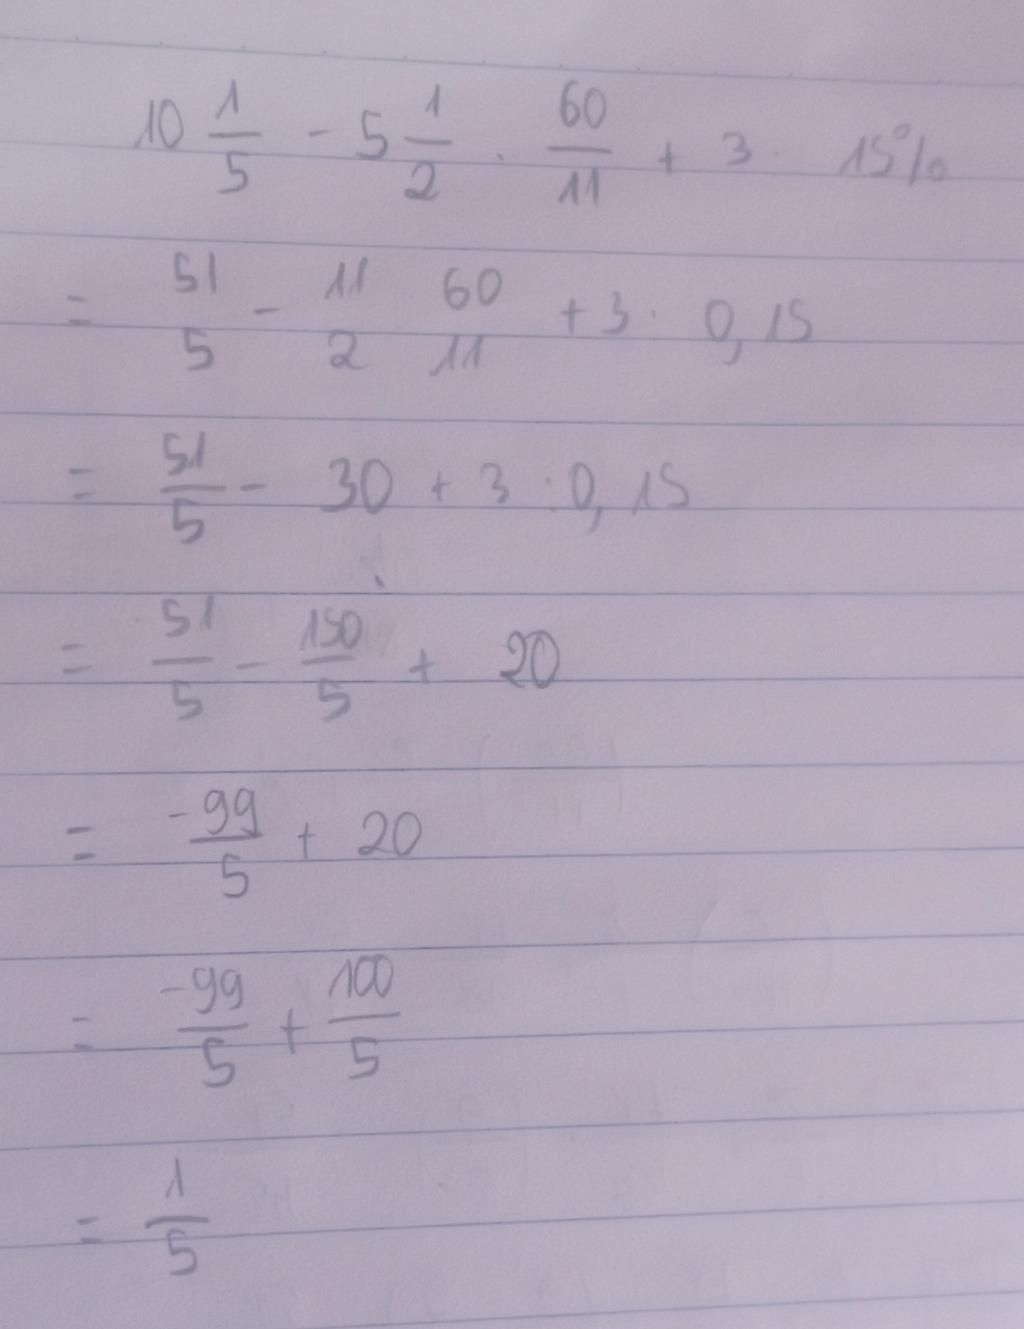 10 1/5 - 5 1/2 . 60/11 + 3 . 15%
= 51/5 - 11/2 60/11 + 3 . 0,15
= 51/5 - 30 + 3 : 0,15
= 51/5 - 150/5 + 20
= -99/5 + 20
= -99/5 + 100/5
= 1/5